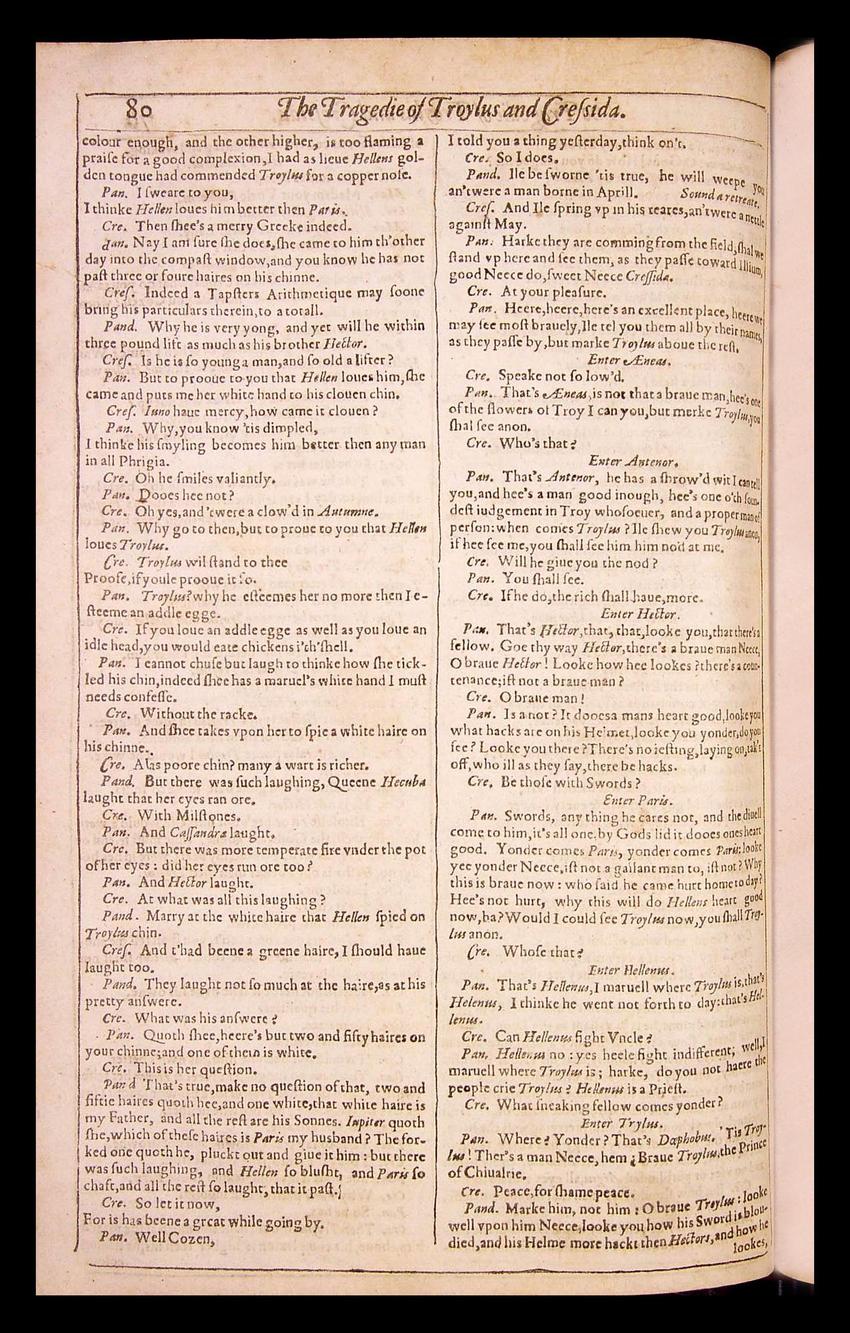 80
The Tragedie of Troylus and Creſsida.
colour enough, and the other higher, is too flaming a
praiſe for a good complexion,I had as lieue Hellens gol-
den tongue had commended Troylus for a copper noſe.
Pan. I ſweare to you,
I thinke Hellen loues him better then Paris.
Cre. Then ſhee's a merry Greeke indeed.
Pan. Nay I am ſure ſhe does,ſhe came to him th'other
day into the compaſt window,and you know he has not
paſt three or foure haires on his chinne.
Creſ. Indeed a Tapſters Arithmetique may ſoone
bring his particulars therein,to a totall.
Pand. Why he is very yong, and yet will he within
three pound lift as much as his brother Hector.
Creſ. Is he is ſo young a man,and ſo old a lifter ?
Pan. But to prooue to you that Hellen loues him,ſhe
came and puts me her white hand to his clouen chin.
Creſ. Iuno haue mercy,how came it clouen ?
Pan. Why,you know 'tis dimpled,
I thinke his ſmyling becomes him better then any man
in all Phrigia.
Cre. Oh he ſmiles valiantly.
Pan. Dooes hee not ?
Cre. Oh yes,and 'twere a clow'd in Autumne.
Pan. Why go to then,but to proue to you that Hellen
loues Troylus.
Cre. Troylus wil ſtand to thee
Proofe,if youle prooue it ſo.
Pan. Troylus?why he eſteemes her no more then I e-
ſteeme an addle egge.
Cre. If you loue an addle egge as well as you loue an
idle head,you would eate chickens i'th'ſhell.
Pan. I cannot chuſe but laugh to thinke how ſhe tick-
led his chin,indeed ſhee has a maruel's white hand I muſt
needs confeſſe.
Cre. Without the racke.
Pan. And ſhee takes vpon her to ſpie a white haire on
his chinne.
Cre. Alas poore chin? many a wart is richer.
Pand. But there was ſuch laughing, Queene Hecuba
laught that her eyes ran ore.
Cre. With Milſtones.
Pan. And Caſſandra laught.
Cre. But there was more temperate fire vnder the pot
of her eyes : did her eyes run ore too ?
Pan. And Hector laught.
Cre. At what was all this laughing ?
Pand. Marry at the white haire that Hellen ſpied on
Troylus chin.
Creſ. And t'had beene a greene haire, I ſhould haue
laught too.
Pand. They laught not ſo much at the haire,as at his
pretty anſwere.
Cre. What was his anſwere ?
Pan. Quoth ſhee,heere's but two and fifty haires on
your chinne;and one of them is white.
Cre. This is her queſtion.
Pand That's true,make no queſtion of that, two and
fiftie haires quoth hee,and one white,that white haire is
my Father, and all the reſt are his Sonnes. Iupiter quoth
ſhe,which of theſe haires is Paris my husband ? The for-
ked one quoth he, pluckt out and giue it him : but there
was ſuch laughing, and Hellen ſo bluſht, and Paris ſo
chaft,and all the reſt ſo laught, that it paſt.
Cre. So let it now,
For is has beene a great while going by.
Pan. Well Cozen,
I told you a thing yeſterday,think on't.
Cre. So I does.
Pand. Ile be ſworne 'tis true, he will weepe you
an'twere a man borne in Aprill. Sound a retreate.
Creſ. And Ile ſpring vp in his teares,an'twere a nettle
againſt May.
Pan. Harke they are comming from the field,ſhal we
ſtand vp here and ſee them, as they paſſe toward Illium,
good Neece do,ſweet Neece Creſſida.
Cre. At your pleaſure.
Pan. Heere,heere,here's an excellent place, heere we
may ſee moſt brauely,Ile tel you them all by their names,
as they paſſe by,but marke Troylus aboue the reſt.
Enter Æneas.
Cre. Speake not ſo low'd.
Pan. That's Æneas,is not that a braue man,hee's one
of the flowers of Troy I can you,but merke Troylus,you
ſhal ſee anon.
Cre. Who's that ?
Enter Antenor.
Pan. That's Antenor, he has a ſhrow'd wit I can tell
you,and hee's a man good inough, hee's one o'th ſoun-
deſt iudgement in Troy whoſoeuer, and a proper man of
perſon:when comes Troylus ? Ile ſhew you Troylus anon,
if hee ſee me,you ſhall ſee him him nod at me.
Cre. Will he giue you the nod ?
Pan. You ſhall ſee.
Cre. If he do,the rich ſhall haue,more.
Enter Hector.
Pan. That's Hector,that, that,looke you,that there's a
fellow. Goe thy way Hector,there's a braue man Neece,
O braue Hector ! Looke how hee lookes ?there's a coun-
tenance;iſt not a braue man ?
Cre. O braue man !
Pan. Is a not ? It dooes a mans heart good,looke you
what hacks are on his Helmet,looke you yonder,do you
ſee ? Looke you there ?There's no ieſting,laying on,tak't
off,who ill as they ſay,there be hacks.
Cre. Be thoſe with Swords ?
Enter Paris.
Pan. Swords, any thing he cares not, and the diuell
come to him,it's all one,by Gods lid it dooes ones heart
good. Yonder comes Paris, yonder comes Paris: looke
yee yonder Neece,iſt not a gallant man to, iſt not ? Why
this is braue now : who ſaid he came hurt home to day ?
Hee's not hurt, why this will do Hellens heart good
now,ha?Would I could ſee Troylus now,you ſhall Troy-
lus anon.
Cre. Whoſe that ?
Enter Hellenus.
Pan. That's Hellenus,I maruell where Troylus is,that's
Helenus, I thinke he went not forth to day:that's Hel-
lenus.
Cre. Can Hellenus fight Vncle ?
Pan. Hellenus no : yes heele fight indifferent, well,I
maruell where Troylus is ; harke, do you not haere the
people crie Troylus ? Hellenus is a Prieſt.
Cre. What ſneaking fellow comes yonder ?
Enter Trylus.
Pan. Where ? Yonder ? That's Dæphobus. 'Tis Troy-
lus ! Ther's a man Neece, hem ¿ Braue Troylus,the Prince
of Chiualrie.
Cre. Peace,for ſhame peace.
Pand. Marke him, not him : O braue Troylus : looke
well vpon him Neece,looke you how his Sword is blou-
died,and his Helme more hackt then Hectors,and how he
lookes,